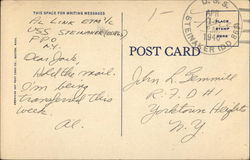 THIS SPACE FOR WRITING MESSAGES
AL LINK ETM 1/c
USS STEINAKER (DD863)
F P O
N.Y.
Dear Jack,
Hold the mail.
I'm being
transferred this
week.
Al.
POST CARD
U.S.S.
STEINAKER (DD 863)
APR
PLACE
STAMP
HERE
John L. Gemmill
R. F. D # 1
Yorktown Heights
N. Y